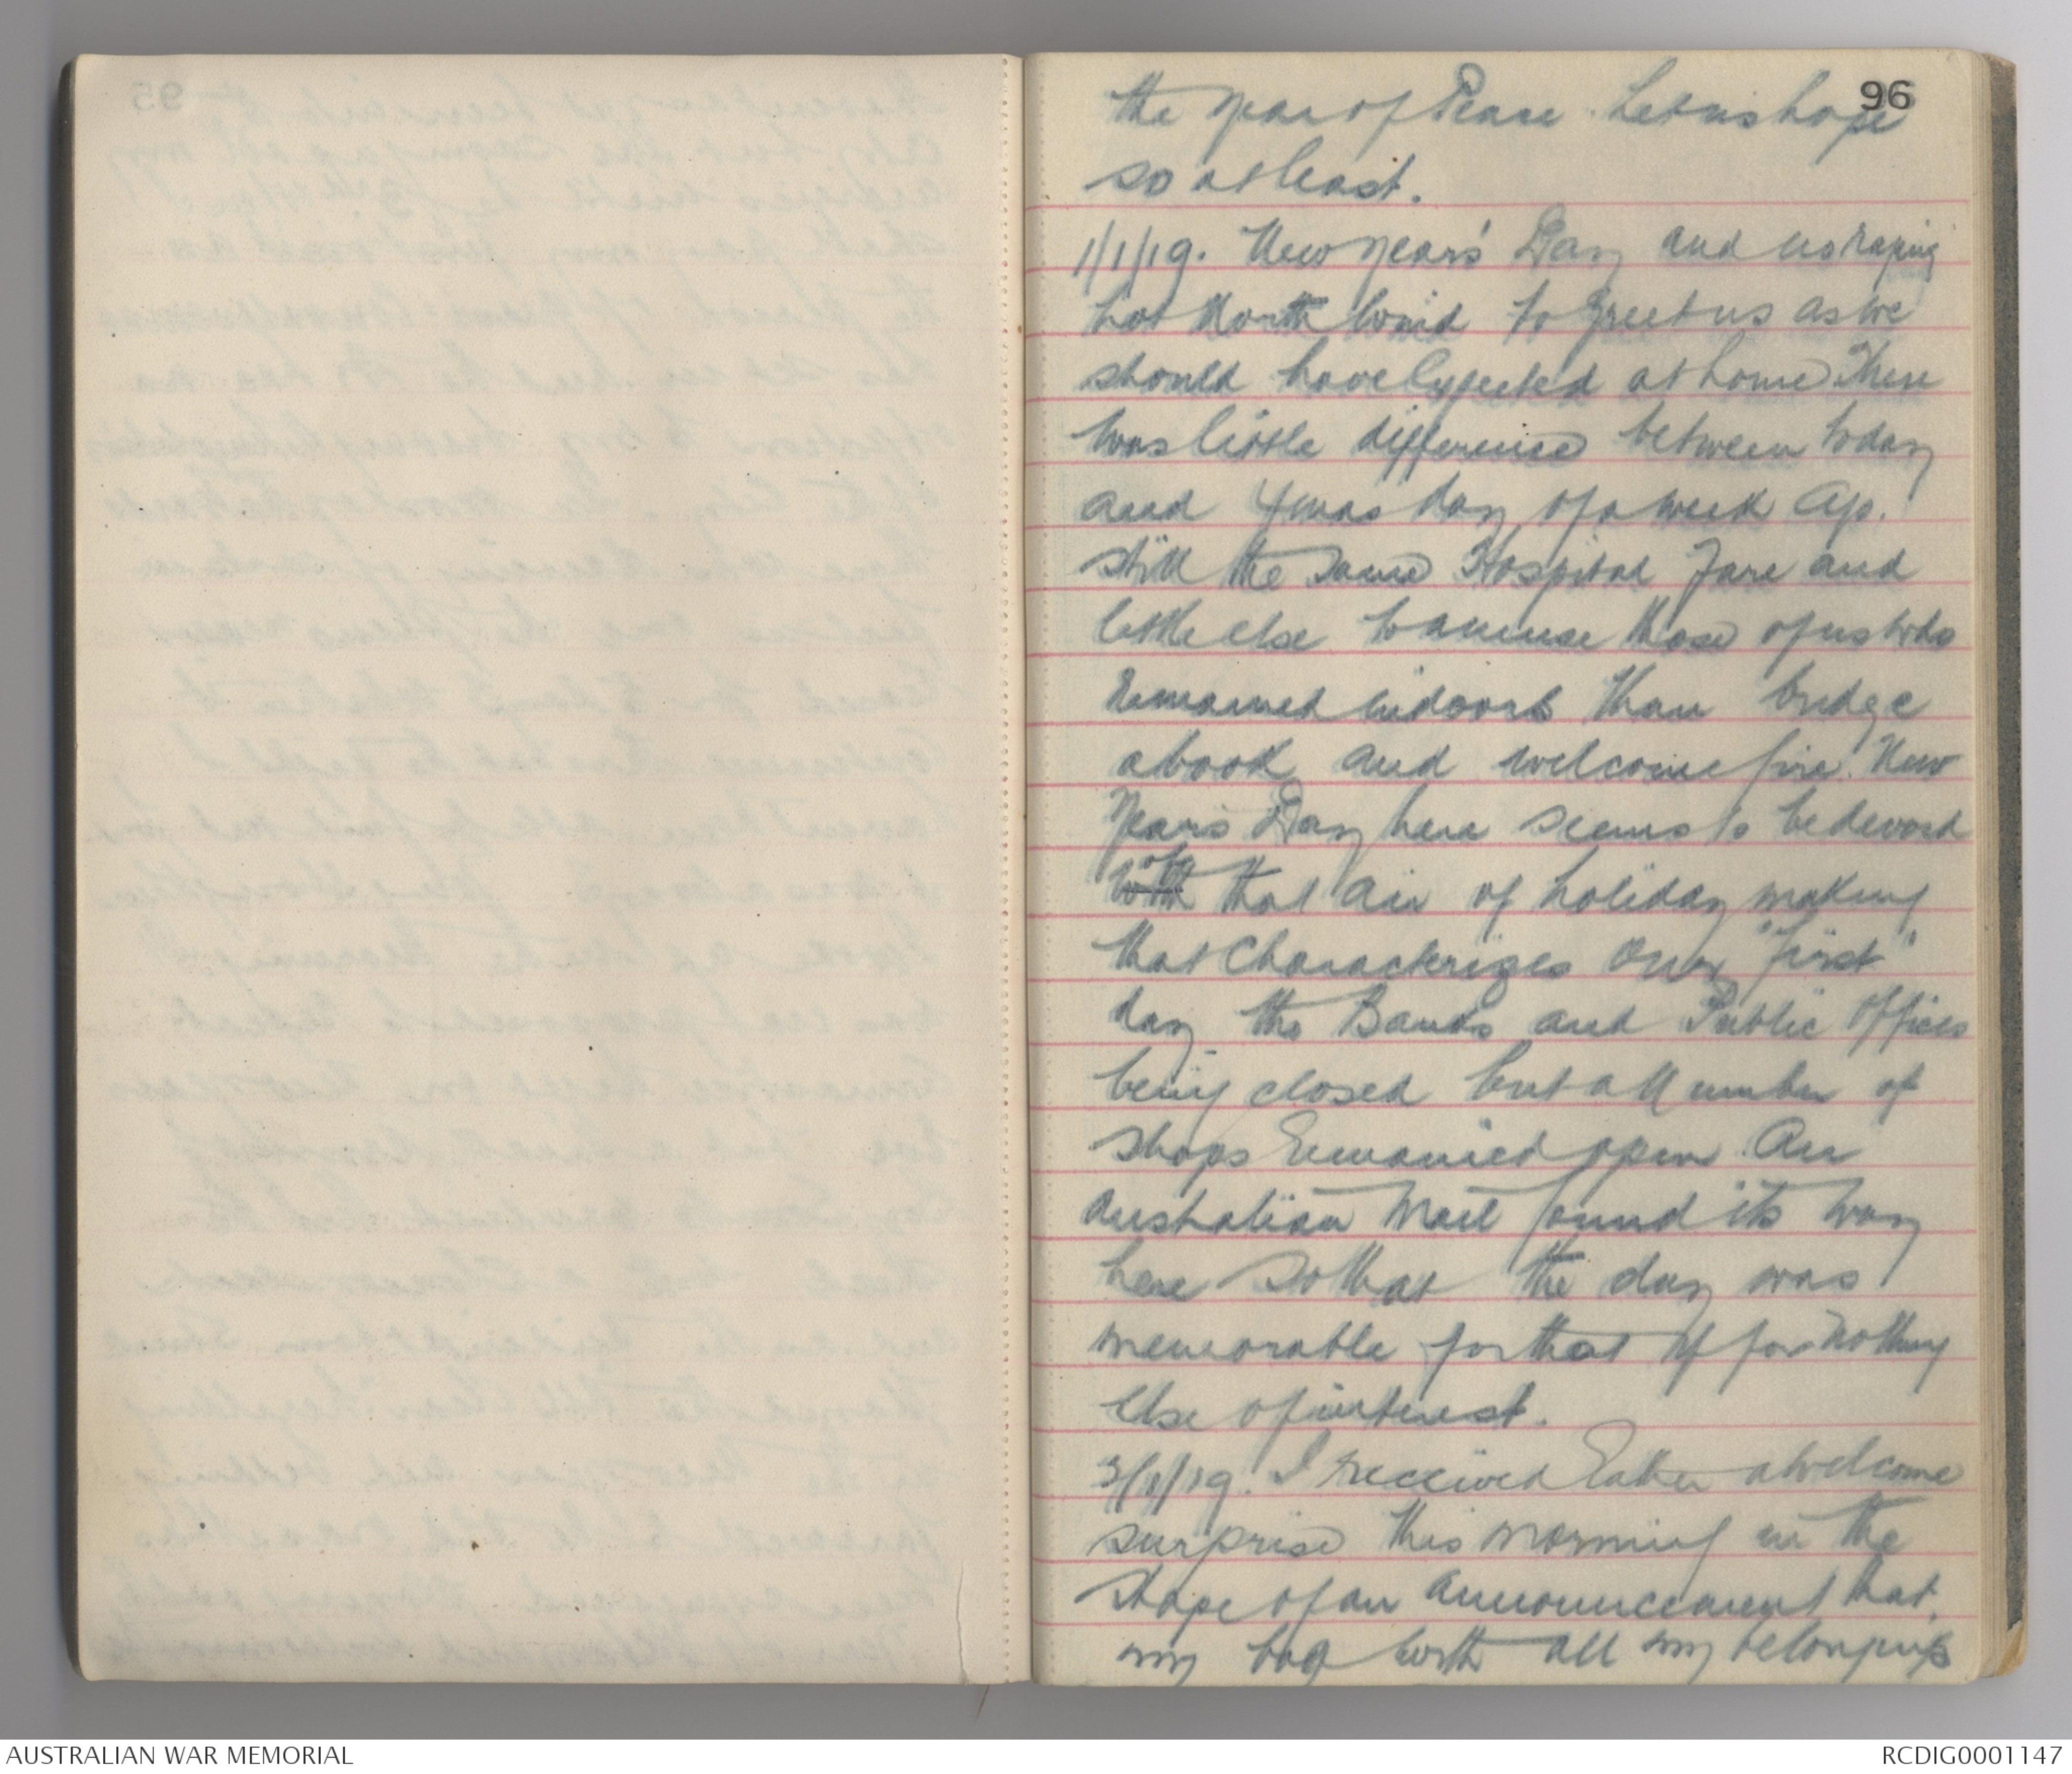 95
96
the year of Peace. Let us hope
so at least.
1/1/19. New Year's Day and no raging
hot North Wind to greet us as we
should have expected at home There
was little difference between today
and Xmas day of a week ago.
Still the same Hospital Fare and
little else to amuse those of us who
remained indoors than bridge
a book and welcome fire. New
Years Day here seems to be devoid
with of that air of holiday making
that characterizes our "first"
day the Banks and Public Offices
being closed but all number of
shops remained open. An
Australian Mail found its way
here so that the day was
memorable for that if for nothing
else of interest.
3/1/19. I received rather a welcome
surprise this morning in the
shape of an announcement that
my bag with all my belongings
AUSTRALIAN WAR MEMORIAL
RCDIG0001147